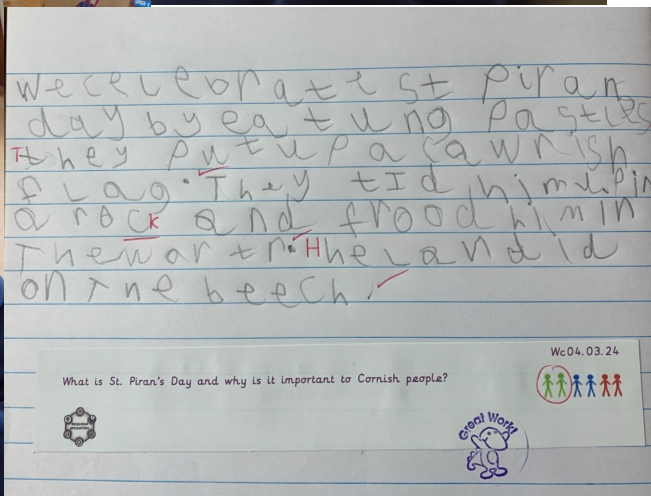 we celebrate st Piran
day by eatung Pasties
They Put up a cawrish
flag. They tId himupin
a rock and frood him in
The wartr. He landid
on The beech.
Wc04.03.24
What is St. Piran's Day and why is it important to Cornish people?
RELIGIOUS EDUCATION
Great Work!